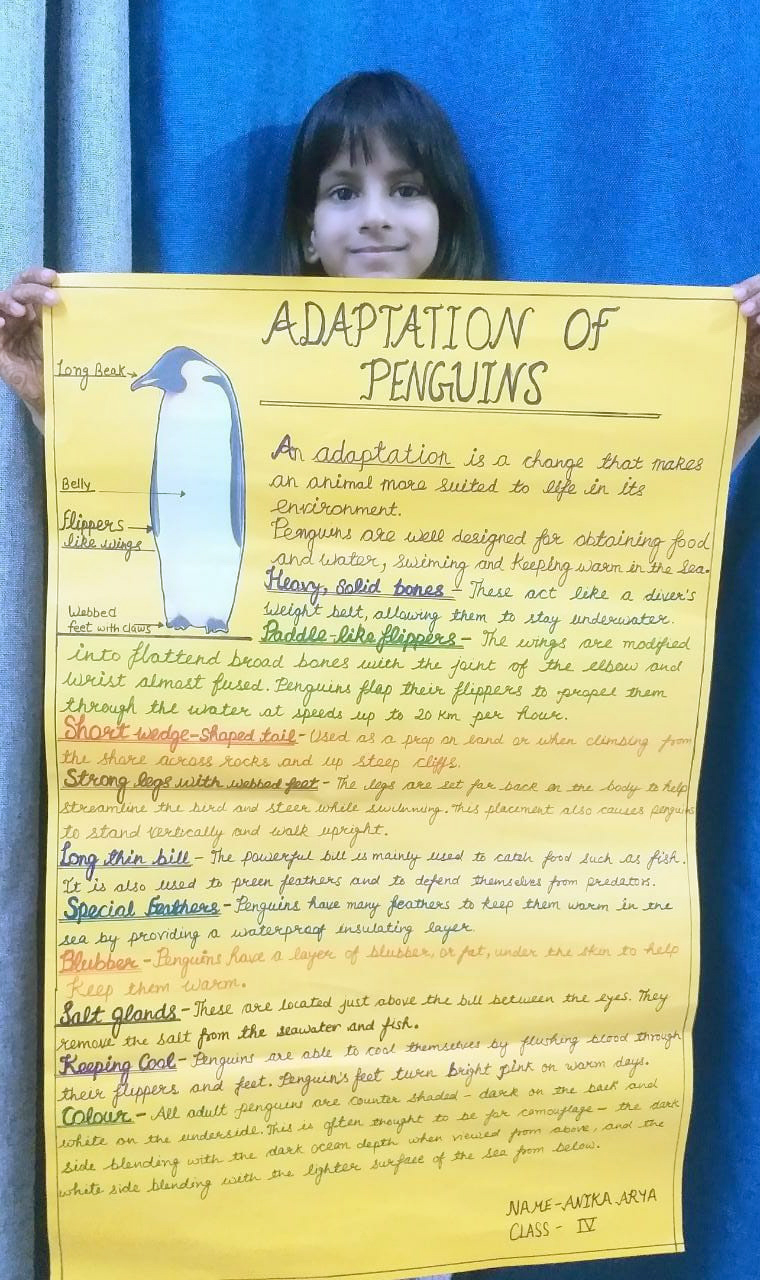 ADAPTATION OF
PENGUINS
Long Beak
Belly
Flippers
like wings
Webbed
feet with claws
An adaptation is a change that makes
an animal more suited to life in its
environment.
Penguins are well designed for obtaining food
and water, swiming and keeping warm in the sea.
Heavy, solid bones - These act like a diver's
weight belt, allowing them to stay underwater.
Paddle-like flippers - The wings are modified
into flattend broad bones with the joint of the elbow and
wrist almost fused. Penguins flap their flippers to propel them
through the water at speeds up to 20 km per hour.
Short wedge-shaped tail - Used as a prop on land or when climbing from
the shore across rocks and up steep cliffs.
Strong legs with webbed feet - The legs are set far back on the body to help
streamline the bird and steer while swimming. This placement also causes penguins
to stand vertically and walk upright.
Long thin bill - The powerful bill is mainly used to catch food such as fish.
It is also used to preen feathers and to defend themselves from predators.
Special Feathers - Penguins have many feathers to keep them warm in the
sea by providing a waterproof insulating layer.
Blubber - Penguins have a layer of blubber, or fat, under the skin to help
keep them warm.
Salt glands - These are located just above the bill between the eyes. They
remove the salt from the seawater and fish.
Keeping Cool - Penguins are able to cool themselves by flushing blood through
their flippers and feet. Penguin's feet turn bright pink on warm days.
Colour - All adult penguins are counter shaded - dark on the back and
white on the underside. This is often thought to be for camouflage - the dark
side blending with the dark ocean depth when viewed from above, and the
white side blending with the lighter surface of the sea from below.
NAME - ANIKA ARYA
CLASS - IV